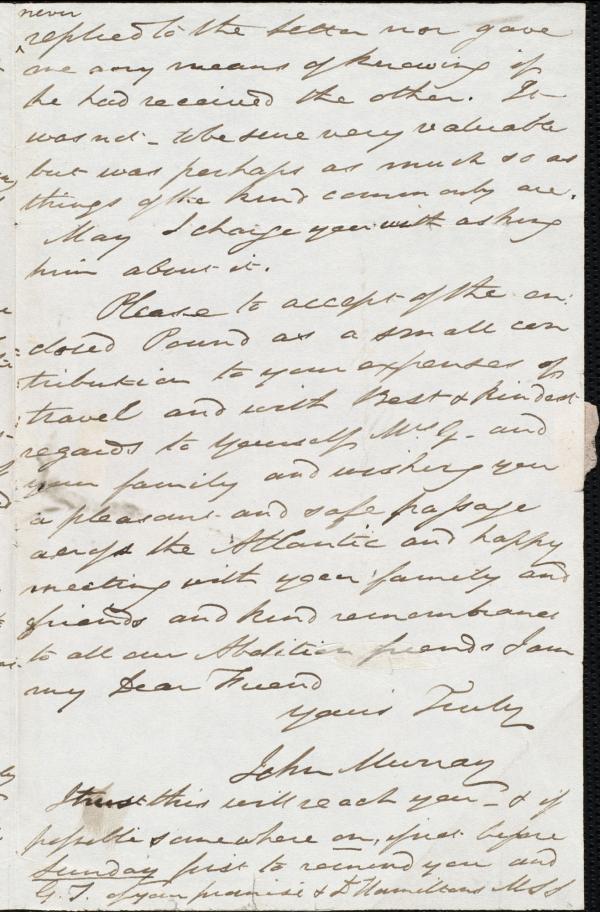 never
replied to the letter nor gave
me any means of knowing if
he had received the other. It
was not - to be sure very valuable
but was perhaps as much so as
things of the kind commonly are.
May I charge you with asking
him about it.
Please to accept of the en:
closed Pound as a small con
tribution to your expenses of
travel and with Best & kindest
regards to yourself, Mrs G. and
your family and wishing you
a pleasant and safe passage
across the Atlantic and happy
meeting with your family and
friends and kind remembrances
to all our Abolition friends I am
my Dear Friend
Yours Truly
John Murray
I trust this will reach you - & if
possible somewhere on, just before
Sunday first to remind you and
G. T. of your promise & Dr Hamiltons MSS